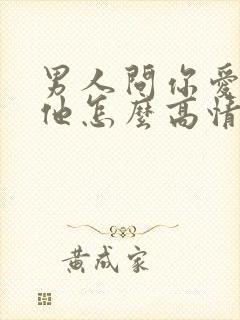 男人問你愛
他怎麼高情
黃成家